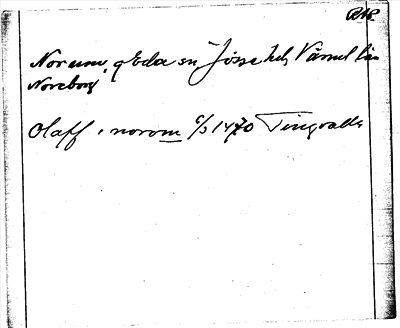 Norum, Eda sn, Jösse hd, Värml. län
Noreborg
Olaff i norom 6/3 1470 Tingvalla